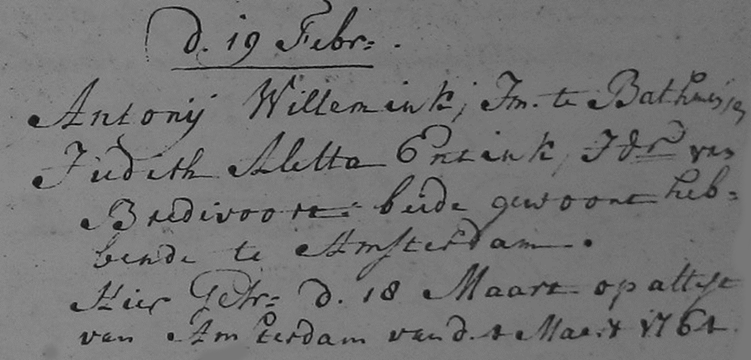 d. 19 Febr=.
Antonij Willemink, Jm. te Bathmen
Judith Aletta Ensink, Jdr van
Bredevoort beide gewoont heb=
bende te Amsterdam.
Hier Getr= d. 18 Maart op attest
van Amsterdam van d. 1 Maart 1761.